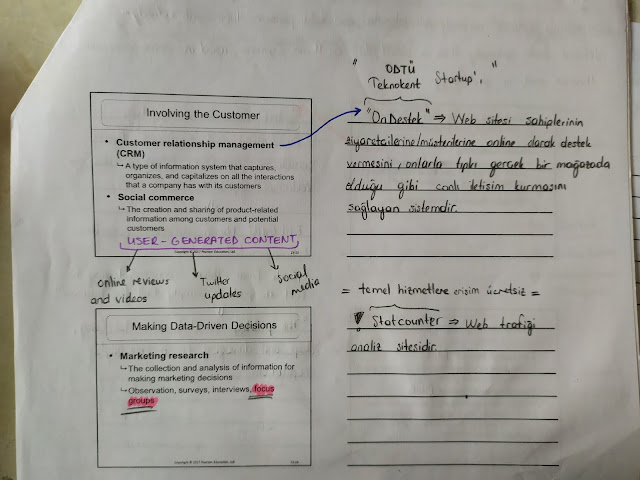 Involving the Customer
• Customer relationship management
(CRM)
↳A type of information system that captures,
organizes, and capitalizes on all the interactions
that a company has with its customers
• Social commerce
↳The creation and sharing of product-related
information among customers and potential
customers
USER-GENERATED CONTENT
online reviews
and videos
Twitter
updates
social
media
Making Data-Driven Decisions
• Marketing research
↳The collection and analysis of information for
making marketing decisions
↳Observation, surveys, interviews, focus
groups
" ODTÜ "
Teknokent Startup'ı
"OnDestek" ⇒ Web sitesi sahiplerinin
ziyaretçilerine/müşterilerine online olarak destek
vermesini, onlarla tıpkı gerçek bir mağazada
olduğu gibi canlı iletişim kurmasını
sağlayan sistemdir.
= temel hizmetlere erişim ücretsiz =
Statcounter ⇒ Web trafiği
analiz sitesidir.